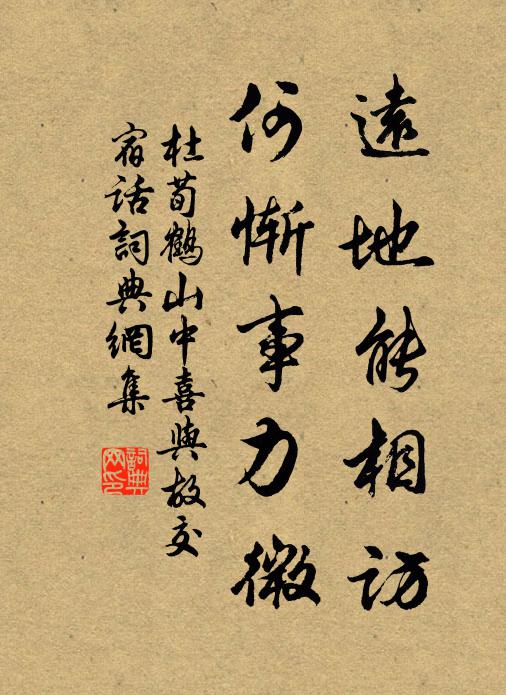 遠地能相訪
何慚事力微
杜荀鶴山中喜與故交
宿話詞典網集
詞典
网印